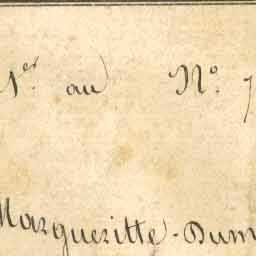 1er. au No. 7
Margueritte-Dum